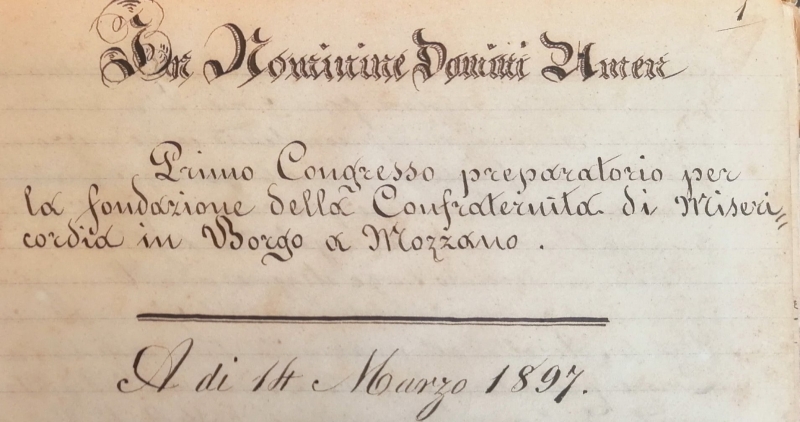 1
In Nominine Domini Amen
Primo Congresso preparatorio per
la fondazione della Confraternita di Miseri„
cordia in Borgo a Mozzano .
A di 14 Marzo 1897.